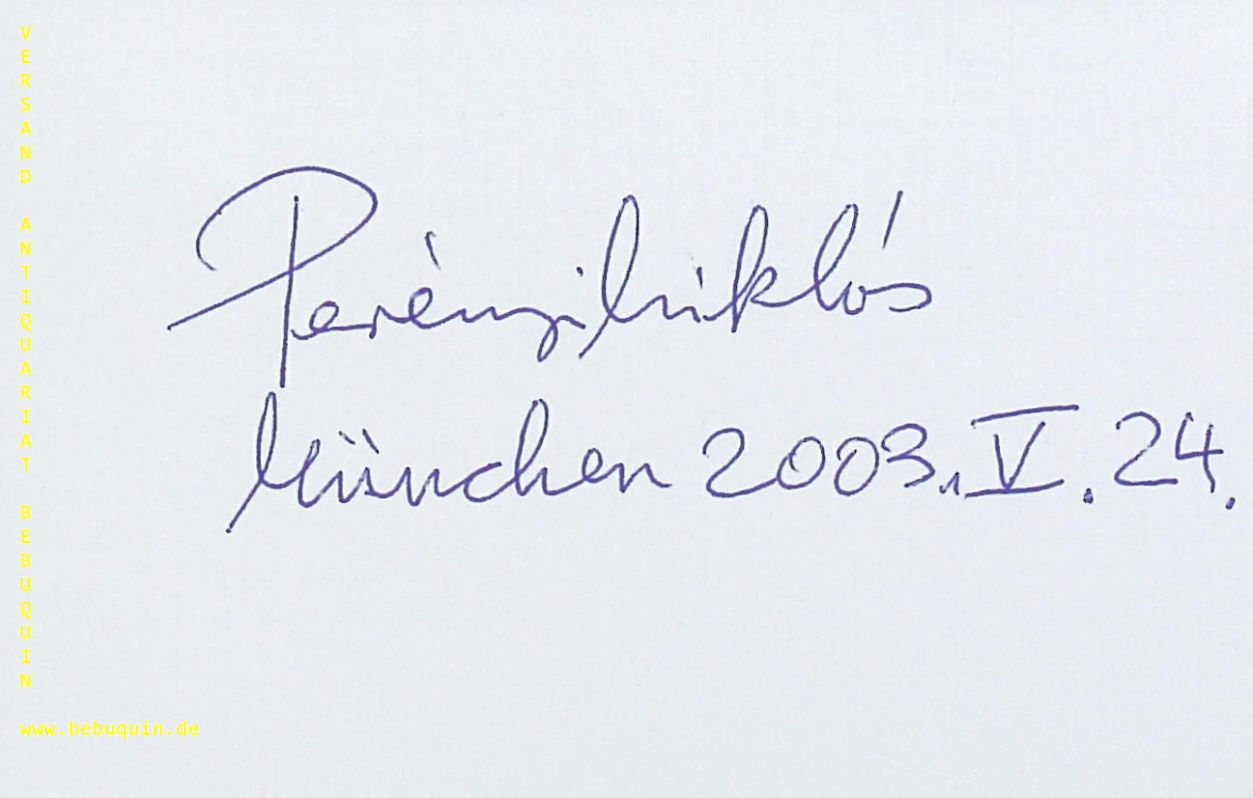 VERSAND ANTIQUARIAT BEBUQUIN
Perényi Miklós
München 2003. V. 24.
www.bebuquin.de